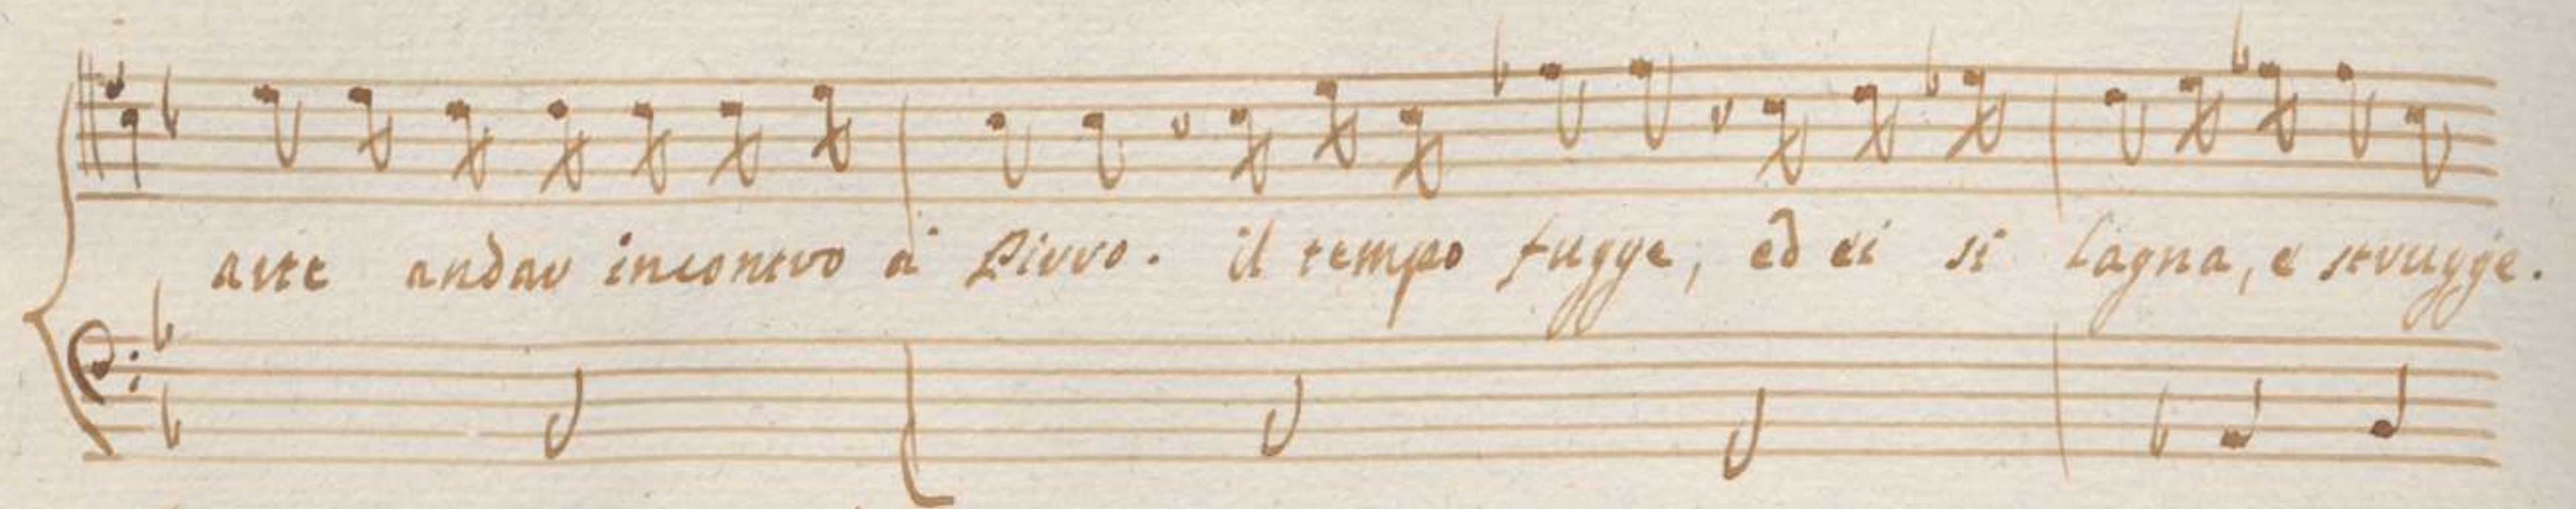 arte andar incontro a' Pirro. il tempo fugge, ed ei si lagna, e strugge.